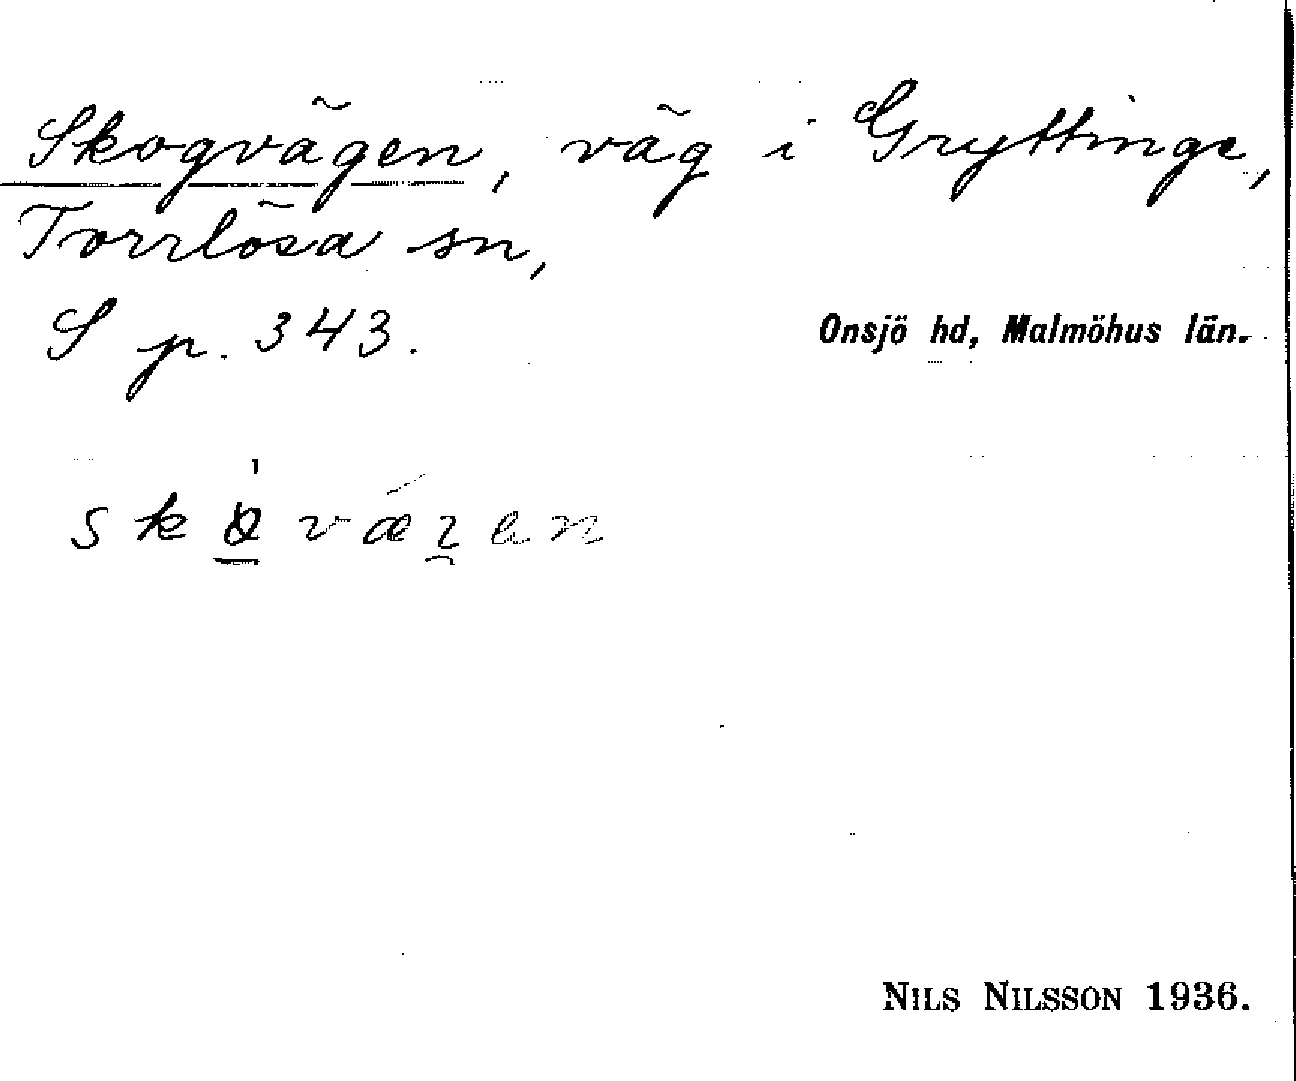 Skogvägen, väg i Gryttinge,
Torrlösa sn,
S p. 343.
Onsjö hd, Malmöhus län.
NILS NILSSON 1936.